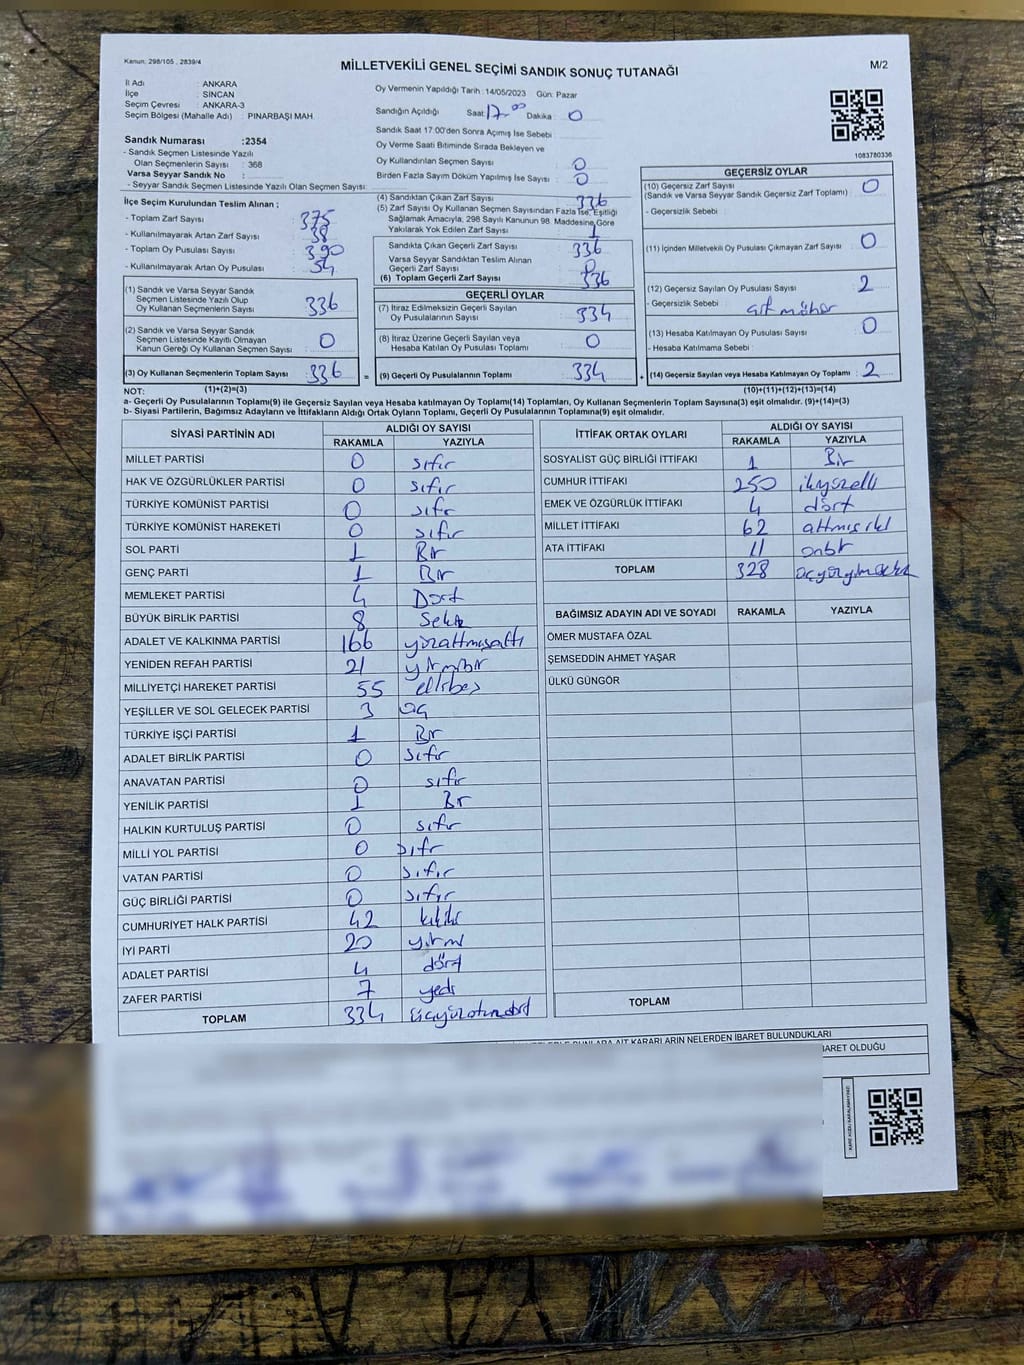 Kanun: 298/105 , 2839/4
MİLLETVEKİLİ GENEL SEÇİMİ SANDIK SONUÇ TUTANAĞI
M/2
İl Adı : ANKARA
İlçe : SİNCAN
Seçim Çevresi : ANKARA-3
Seçim Bölgesi (Mahalle Adı) : PINARBAŞI MAH.
Sandık Numarası :2354
- Sandık Seçmen Listesinde Yazılı
Olan Seçmenlerin Sayısı : 368
Varsa Seyyar Sandık No :
- Seyyar Sandık Seçmen Listesinde Yazılı Olan Seçmen Sayısı:
İlçe Seçim Kurulundan Teslim Alınan ;
- Toplam Zarf Sayısı : 375
- Kullanılmayarak Artan Zarf Sayısı : 38
- Toplam Oy Pusulası Sayısı : 390
- Kullanılmayarak Artan Oy Pusulası : 54
(1) Sandık ve Varsa Seyyar Sandık
Seçmen Listesinde Yazılı Olup
Oy Kullanan Seçmenlerin Sayısı : 336
(2) Sandık ve Varsa Seyyar Sandık
Seçmen Listesinde Kayıtlı Olmayan
Kanun Gereği Oy Kullanan Seçmen Sayısı : 0
(3) Oy Kullanan Seçmenlerin Toplam Sayısı : 336
(1)+(2)=(3)
Oy Vermenin Yapıldığı Tarih : 14/05/2023 Gün: Pazar
Sandığın Açıldığı Saat: 17.00 Dakika : 0
Sandık Saat 17:00'den Sonra Açımış İse Sebebi :
Oy Verme Saati Bitiminde Sırada Bekleyen ve
Oy Kullandırılan Seçmen Sayısı : 0
Birden Fazla Sayım Döküm Yapılmış İse Sayısı : 0
(4) Sandıktan Çıkan Zarf Sayısı : 336
(5) Zarf Sayısı Oy Kullanan Seçmen Sayısından Fazla İse, Eşitliği
Sağlamak Amacıyla, 298 Sayılı Kanunun 98. Maddesine Göre
Yakılarak Yok Edilen Zarf Sayısı : 1
Sandıkta Çıkan Geçerli Zarf Sayısı : 336
Varsa Seyyar Sandıktan Teslim Alınan
Geçerli Zarf Sayısı : 0
(6) Toplam Geçerli Zarf Sayısı : 336
GEÇERLİ OYLAR
(7) İtiraz Edilmeksizin Geçerli Sayılan
Oy Pusulalarının Sayısı : 334
(8) İtiraz Üzerine Geçerli Sayılan veya
Hesaba Katılan Oy Pusulası Toplamı : 0
= (9) Geçerli Oy Pusulalarının Toplamı : 334
1083780336
GEÇERSİZ OYLAR
(10) Geçersiz Zarf Sayısı : 0
(Sandık ve Varsa Seyyar Sandık Geçersiz Zarf Toplamı)
- Geçersizlik Sebebi :
(11) İçinden Milletvekili Oy Pusulası Çıkmayan Zarf Sayısı : 0
(12) Geçersiz Sayılan Oy Pusulası Sayısı : 2
- Geçersizlik Sebebi : çift mühür
(13) Hesaba Katılmayan Oy Pusulası Sayısı : 0
- Hesaba Katılmama Sebebi :
+ (14) Geçersiz Sayılan veya Hesaba Katılmayan Oy Toplamı : 2
(10)+(11)+(12)+(13)=(14)
NOT:
a- Geçerli Oy Pusulalarının Toplamı(9) ile Geçersiz Sayılan veya Hesaba katılmayan Oy Toplamı(14) Toplamları, Oy Kullanan Seçmenlerin Toplam Sayısına(3) eşit olmalıdır. (9)+(14)=(3)
b- Siyasi Partilerin, Bağımsız Adayların ve İttifakların Aldığı Ortak Oyların Toplamı, Geçerli Oy Pusulalarının Toplamına(9) eşit olmalıdır.
SİYASİ PARTİNİN ADI ALDIĞI OY SAYISI
RAKAMLA YAZIYLA
MİLLET PARTİSİ 0 sıfır
HAK VE ÖZGÜRLÜKLER PARTİSİ 0 sıfır
TÜRKİYE KOMÜNİST PARTİSİ 0 sıfır
TÜRKİYE KOMÜNİST HAREKETİ 0 sıfır
SOL PARTİ 1 Bir
GENÇ PARTİ 1 Bir
MEMLEKET PARTİSİ 4 Dört
BÜYÜK BİRLİK PARTİSİ 8 Sekiz
ADALET VE KALKINMA PARTİSİ 166 yüzaltmışaltı
YENİDEN REFAH PARTİSİ 21 yirmibir
MİLLİYETÇİ HAREKET PARTİSİ 55 ellibeş
YEŞİLLER VE SOL GELECEK PARTİSİ 3 üç
TÜRKİYE İŞÇİ PARTİSİ 1 Bir
ADALET BİRLİK PARTİSİ 0 sıfır
ANAVATAN PARTİSİ 0 sıfır
YENİLİK PARTİSİ 1 Bir
HALKIN KURTULUŞ PARTİSİ 0 sıfır
MİLLİ YOL PARTİSİ 0 sıfır
VATAN PARTİSİ 0 sıfır
GÜÇ BİRLİĞİ PARTİSİ 0 sıfır
CUMHURİYET HALK PARTİSİ 42 kırkiki
İYİ PARTİ 20 yirmi
ADALET PARTİSİ 4 dört
ZAFER PARTİSİ 7 yedi
TOPLAM 334 üçyüzotuzdört
İTTİFAK ORTAK OYLARI ALDIĞI OY SAYISI
RAKAMLA YAZIYLA
SOSYALİST GÜÇ BİRLİĞİ İTTİFAKI 1 Bir
CUMHUR İTTİFAKI 250 ikiyüzelli
EMEK VE ÖZGÜRLÜK İTTİFAKI 4 dört
MİLLET İTTİFAKI 62 altmışiki
ATA İTTİFAKI 11 onbir
TOPLAM 328 üçyüzyirmisekiz
BAĞIMSIZ ADAYIN ADI VE SOYADI RAKAMLA YAZIYLA
ÖMER MUSTAFA ÖZAL
ŞEMSEDDİN AHMET YAŞAR
ÜLKÜ GÜNGÖR
TOPLAM
AİT KARARLARIN NELERDEN İBARET BULUNDUKLARI
İBARET OLDUĞU